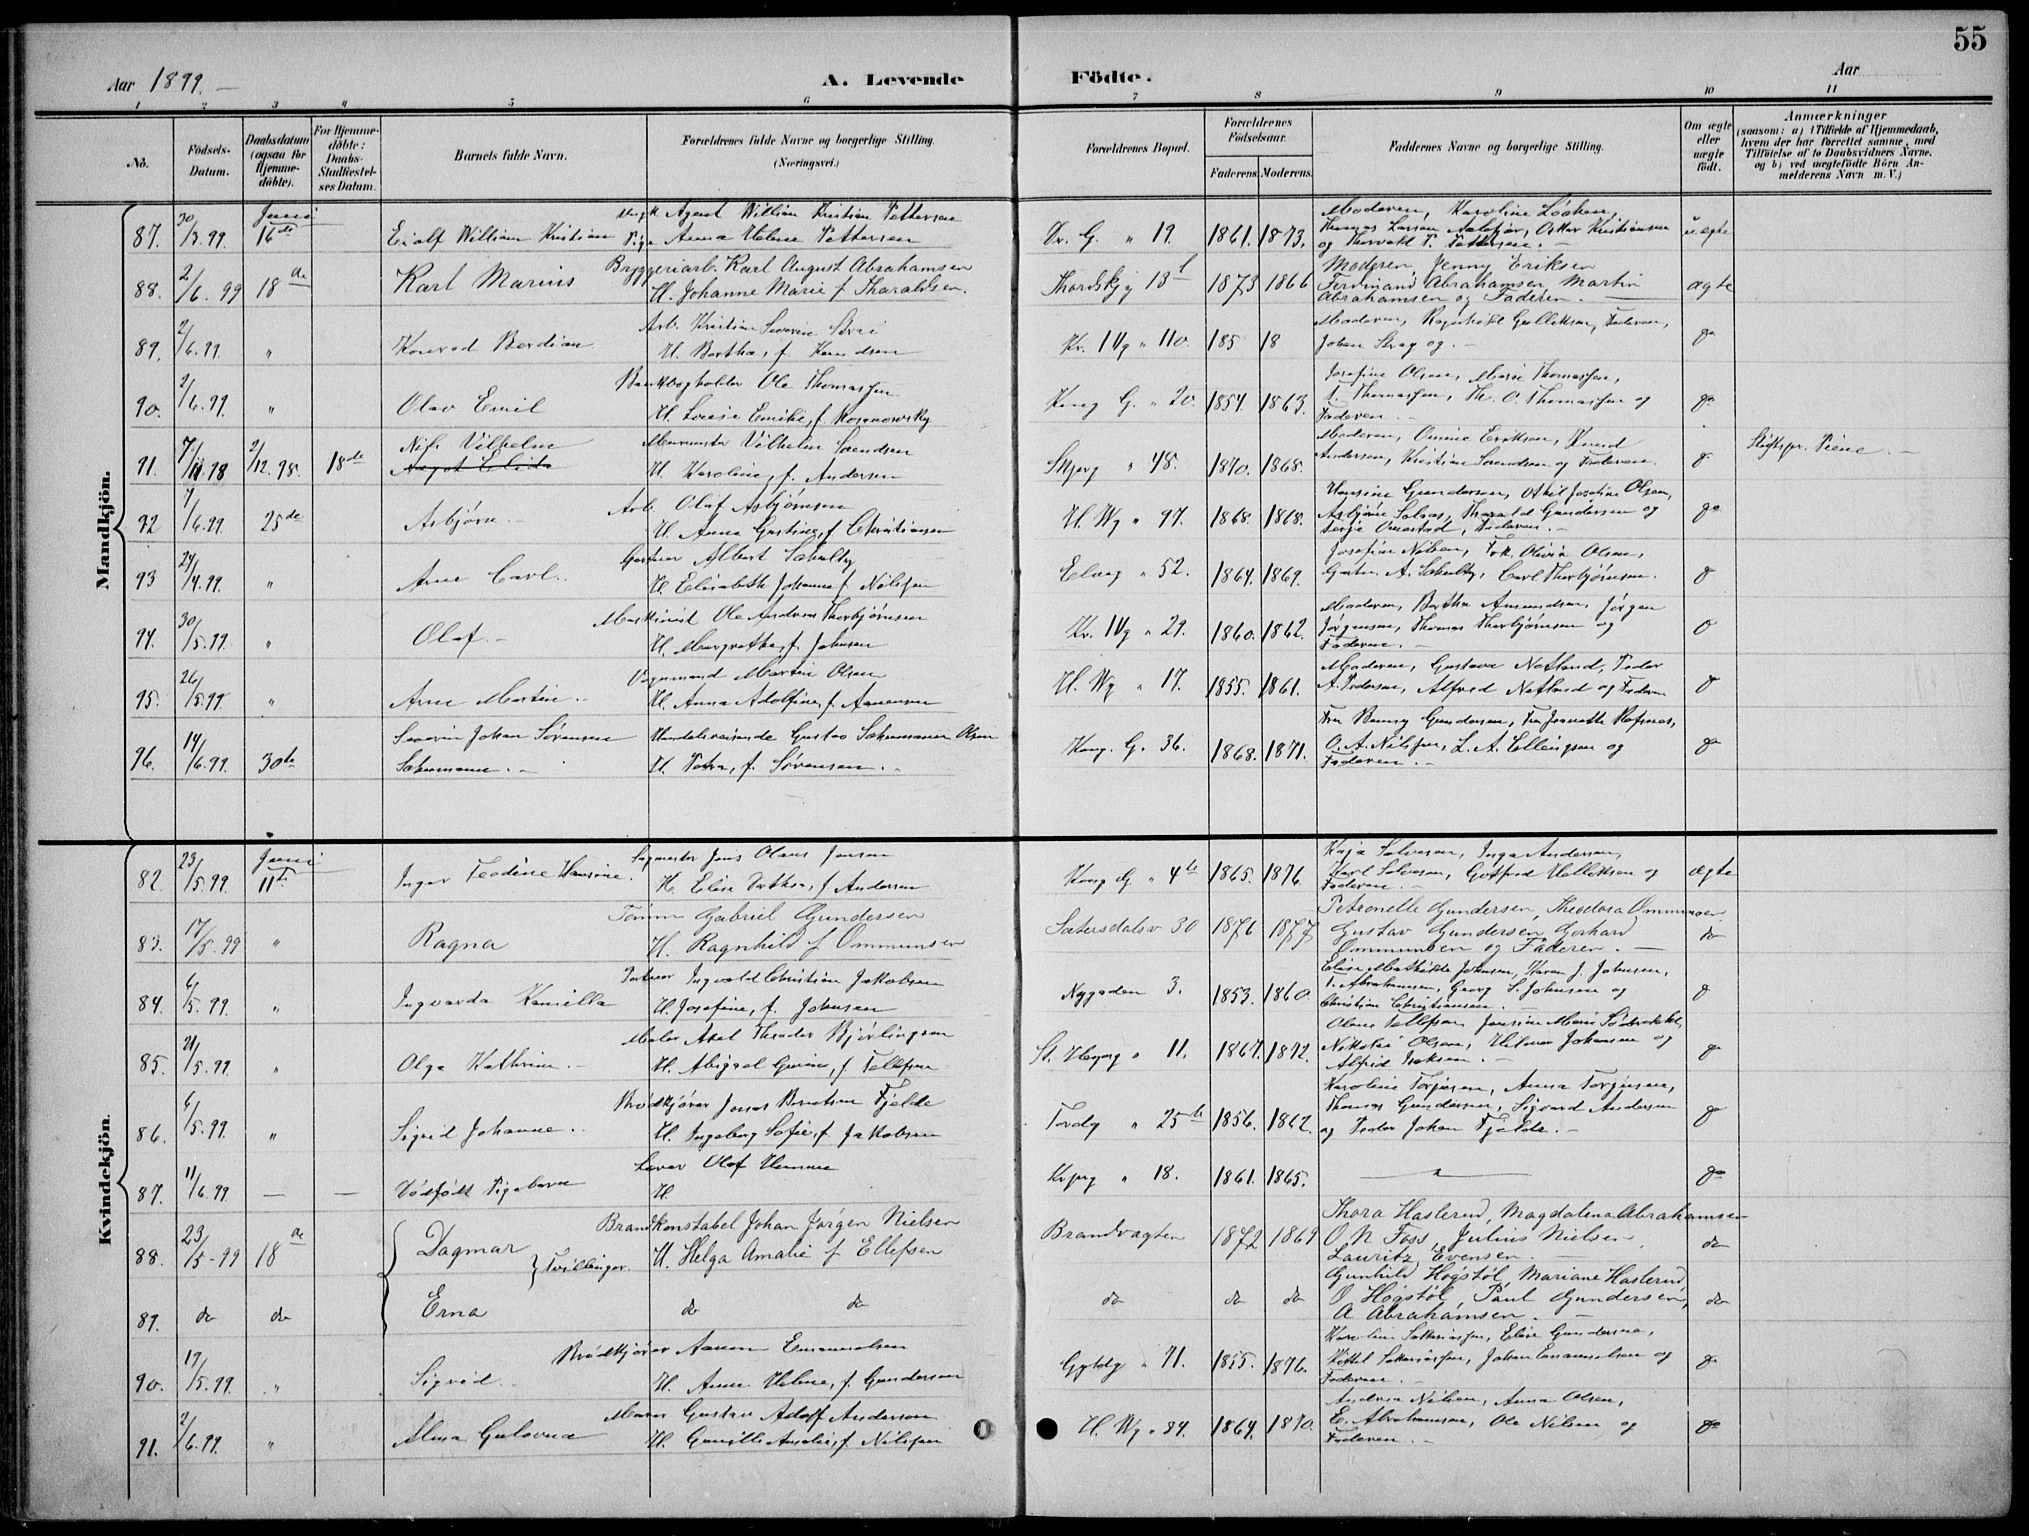 55
Aar 1899.
A. Levende Födte.
Aar
1 2 3 4 5 6 7 8 9 10 11
No.
Födsels-Datum.
Daabsdatum (ogsaa for Hjemme-döbte).
For Hjemme-döbte: Daabs-Stadfæstel-ses Datum.
Barnets fulde Navn.
Forældrenes fulde Navne og borgerlige Stilling (Næringsvei.)
Forældrenes Bopæl.
Forældrenes Födselsaar.
Faderens. Moderens.
Faddernes Navne og borgerlige Stilling.
Om ægte eller uægte födt.
Anmærkninger
(saasom: a) i Tilfælde af Hjemmedaab, hvem der har forrettet samme, med Tilföielse af to Daabsvidners Navne, og b) ved uægtefödte Börn An-melderens Navn m. V.)
Mandkjön.
Juni
87. 30/3.99. 16de William Kristian Agent William Kristian Pettersen
Pige Anna Helene Pettersen
Dr. G. " 19. 1861. 1873.
Moderen, Karoline
Oskar Kristiansen
og Thorvald P. Pettersen. uægte
88. 2/6.99 18de Karl Marius Bryggeriarb. Karl August Abrahamsen
H. Johanne Marie f Tharaldsen.
13 1873 1866
Moderen, Jenny Eriksen
Ferdinand Abrahamsen, Martin
Abrahamsen og Faderen. ægte
89. 2/6.99. " Konrad Berdian Arb. Kristian Severin
H. Bertha, f. Knudsen
Kr. IVg " 110. 185 18
Moderen, Ragnhild Gulliksen, Faderen,
Johan og. do
90. 2/6.99. " Olav Emil Bankbogholder Ole Thomassen
H. Louise Emilie, f.
Kong. G. " 20. 1854. 1863.
Josefine Olsen, Marie Thomassen,
T. Thomassen, Th. O. Thomassen og
Faderen. do
91. 7/11.98 2/12.98. 18de Nils Vilhelm Murmester Vilhelm Svendsen
H. Karoline, f. Andersen
" 48. 1870. 1868.
Moderen, Omine Eriksen, Knud
Andersen, Kristian Svendsen og Faderen. do
92 7/6.99. 25de Asbjørn. Arb. Olaf Asbjørnsen
H. Anna Gustine, f. Christiansen
H. Wg " 97. 1868. 1868.
Hansine Gundersen, Josefine Olsen,
Tharald Gundersen og
Faderen. do
93 24/4.99. " Arne Carl. Gartner Albert Schulty
H. Elisabeth Johanne f. Nilssen
Elveg " 52. 1864. 1869.
Josefine Nilsen, Frk. Olivia Olsen,
Gartn. A. Schulty, Carl Thorbjørnsen. do
94. 30/5.99. " Olaf. Maskinist Ole Andreas Thorbjørnsen
H. Margrethe, f. Johnsen
Kr. IVg " 29. 1860. 1862.
Moderen, Bertha Amundsen, Jørgen
Jørgensen, Thomas Thorbjørnsen og
Faderen. do
95. 26/5.99 " Arne Martin. Vognmand Martin Olsen
H. Anna Adolfine, f. Aanensen
H. Wg " 17. 1855. 1861.
Moderen, Gustava Netland, Peder
A. Pedersen, Alfred Netland og Faderen do
96. 14/6.99. 30te Severin Johan Sørensen Schumann. Handelsreisende Gustav Schumann Olsen
H. Petra, f. Sørensen.
Kong. G. 36. 1868. 1871.
Fru Benny Gundersen, Fru Jeanette
O. A. Nilssen, L. A. Ellingsen og
Faderen. do
Kvindekjön.
Juni
82. 23/5.99. 11te Inger Teodine Hansine. Sagmester Jens Olaus Jensen
H. Elise f. Andersen
Kong G. " 4b 1865. 1876.
Kaja Salvesen, Inga Andersen,
Karl Salvesen, Gotfred og
Faderen. ægte
83. 17/5.99 " Ragna Tömm Gabriel Gundersen
H. Ragnhild f Ommunsen
Sætersdalsv 30 1876 1877
Petronelle Gundersen, Theodora Ommunsen,
Gustav Gundersen Gerhard
Ommunsen og Faderen. do
84. 6/5.99. " Ingvarda Kamilla Ingvald Christian Jakobsen
H. Josefine, f. Johnsen
Nygaden 3. 1853. 1860.
Elise Mathilde Johnsen, Karen J. Johnsen,
T. Abrahamsen, Georg S. Johnsen og
Christian Christiansen. do
85. 21/5.99. " Olga Kathrine. Maler Axel Theodor Bjørlingson
H. Abigael f. Tellefsen
St. " 11. 1867. 1872.
Olene Tellefsen, Jensine Marie
Nikolai Olsen, Hilmar Johansen og
Alfred Isaksen. do
86. 6/5.99. " Sigrid Johanne. Brødkjører Jonas Berntsen Fjelde
H. Ingeborg Sofie, f. Jakobsen
" 25b 1856. 1862.
Karoline Torjusen, Anna Torjusen,
Thomas Gundersen, Sigvard Andersen
og Peder Johan Fjelde. do
87. 11/6.99. — — Dødfødt Pigebarn Olaf
H.
" 18. 1861. 1865. do
88. 23/5-99 18de Dagmar Brandkonstabel Johan Jørgen Nielsen
Tvillinger. H. Helga Amalie f Ellefsen
Brandvagten 1872 1869
Thora Haslerud, Magdalena Abrahamsen
O N Foss, Julius Nielsen,
Lauritz Evensen. do
89. do do Erna do do
do do do
Gunhild Høgstøl, Mariane Haslerud,
O. Høgstøl, Paul Gundersen,
A Abrahamsen. do
90. 19/5.99. " Sigrid. Brødkjører Aanen Emanuelsen
H. Anne Helene, f. Gundersen
Gyldg " 71. 1855. 1876.
Elise Gundersen,
Johan Emanuelsen og
Faderen. do
91. 2/6.99. " Alma Gustav Adolf Andersen
H. Gunille Amalie, f. Nilssen
H. Wg " 84. 1864. 1870.
Andrea Nilsen, Anna Olsen,
E. Abrahamsen, Ole Nilsen og
Faderen. do